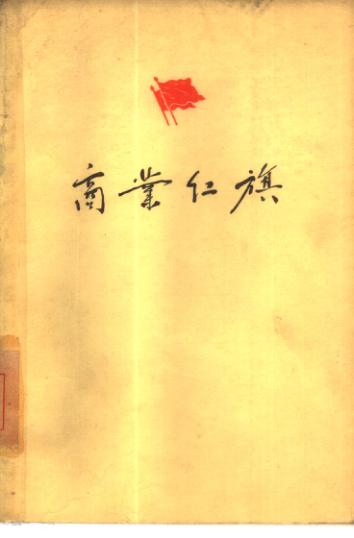 商業红旗